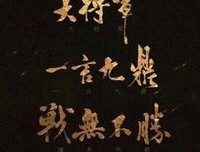 大将军
一言九鼎
戰無不勝